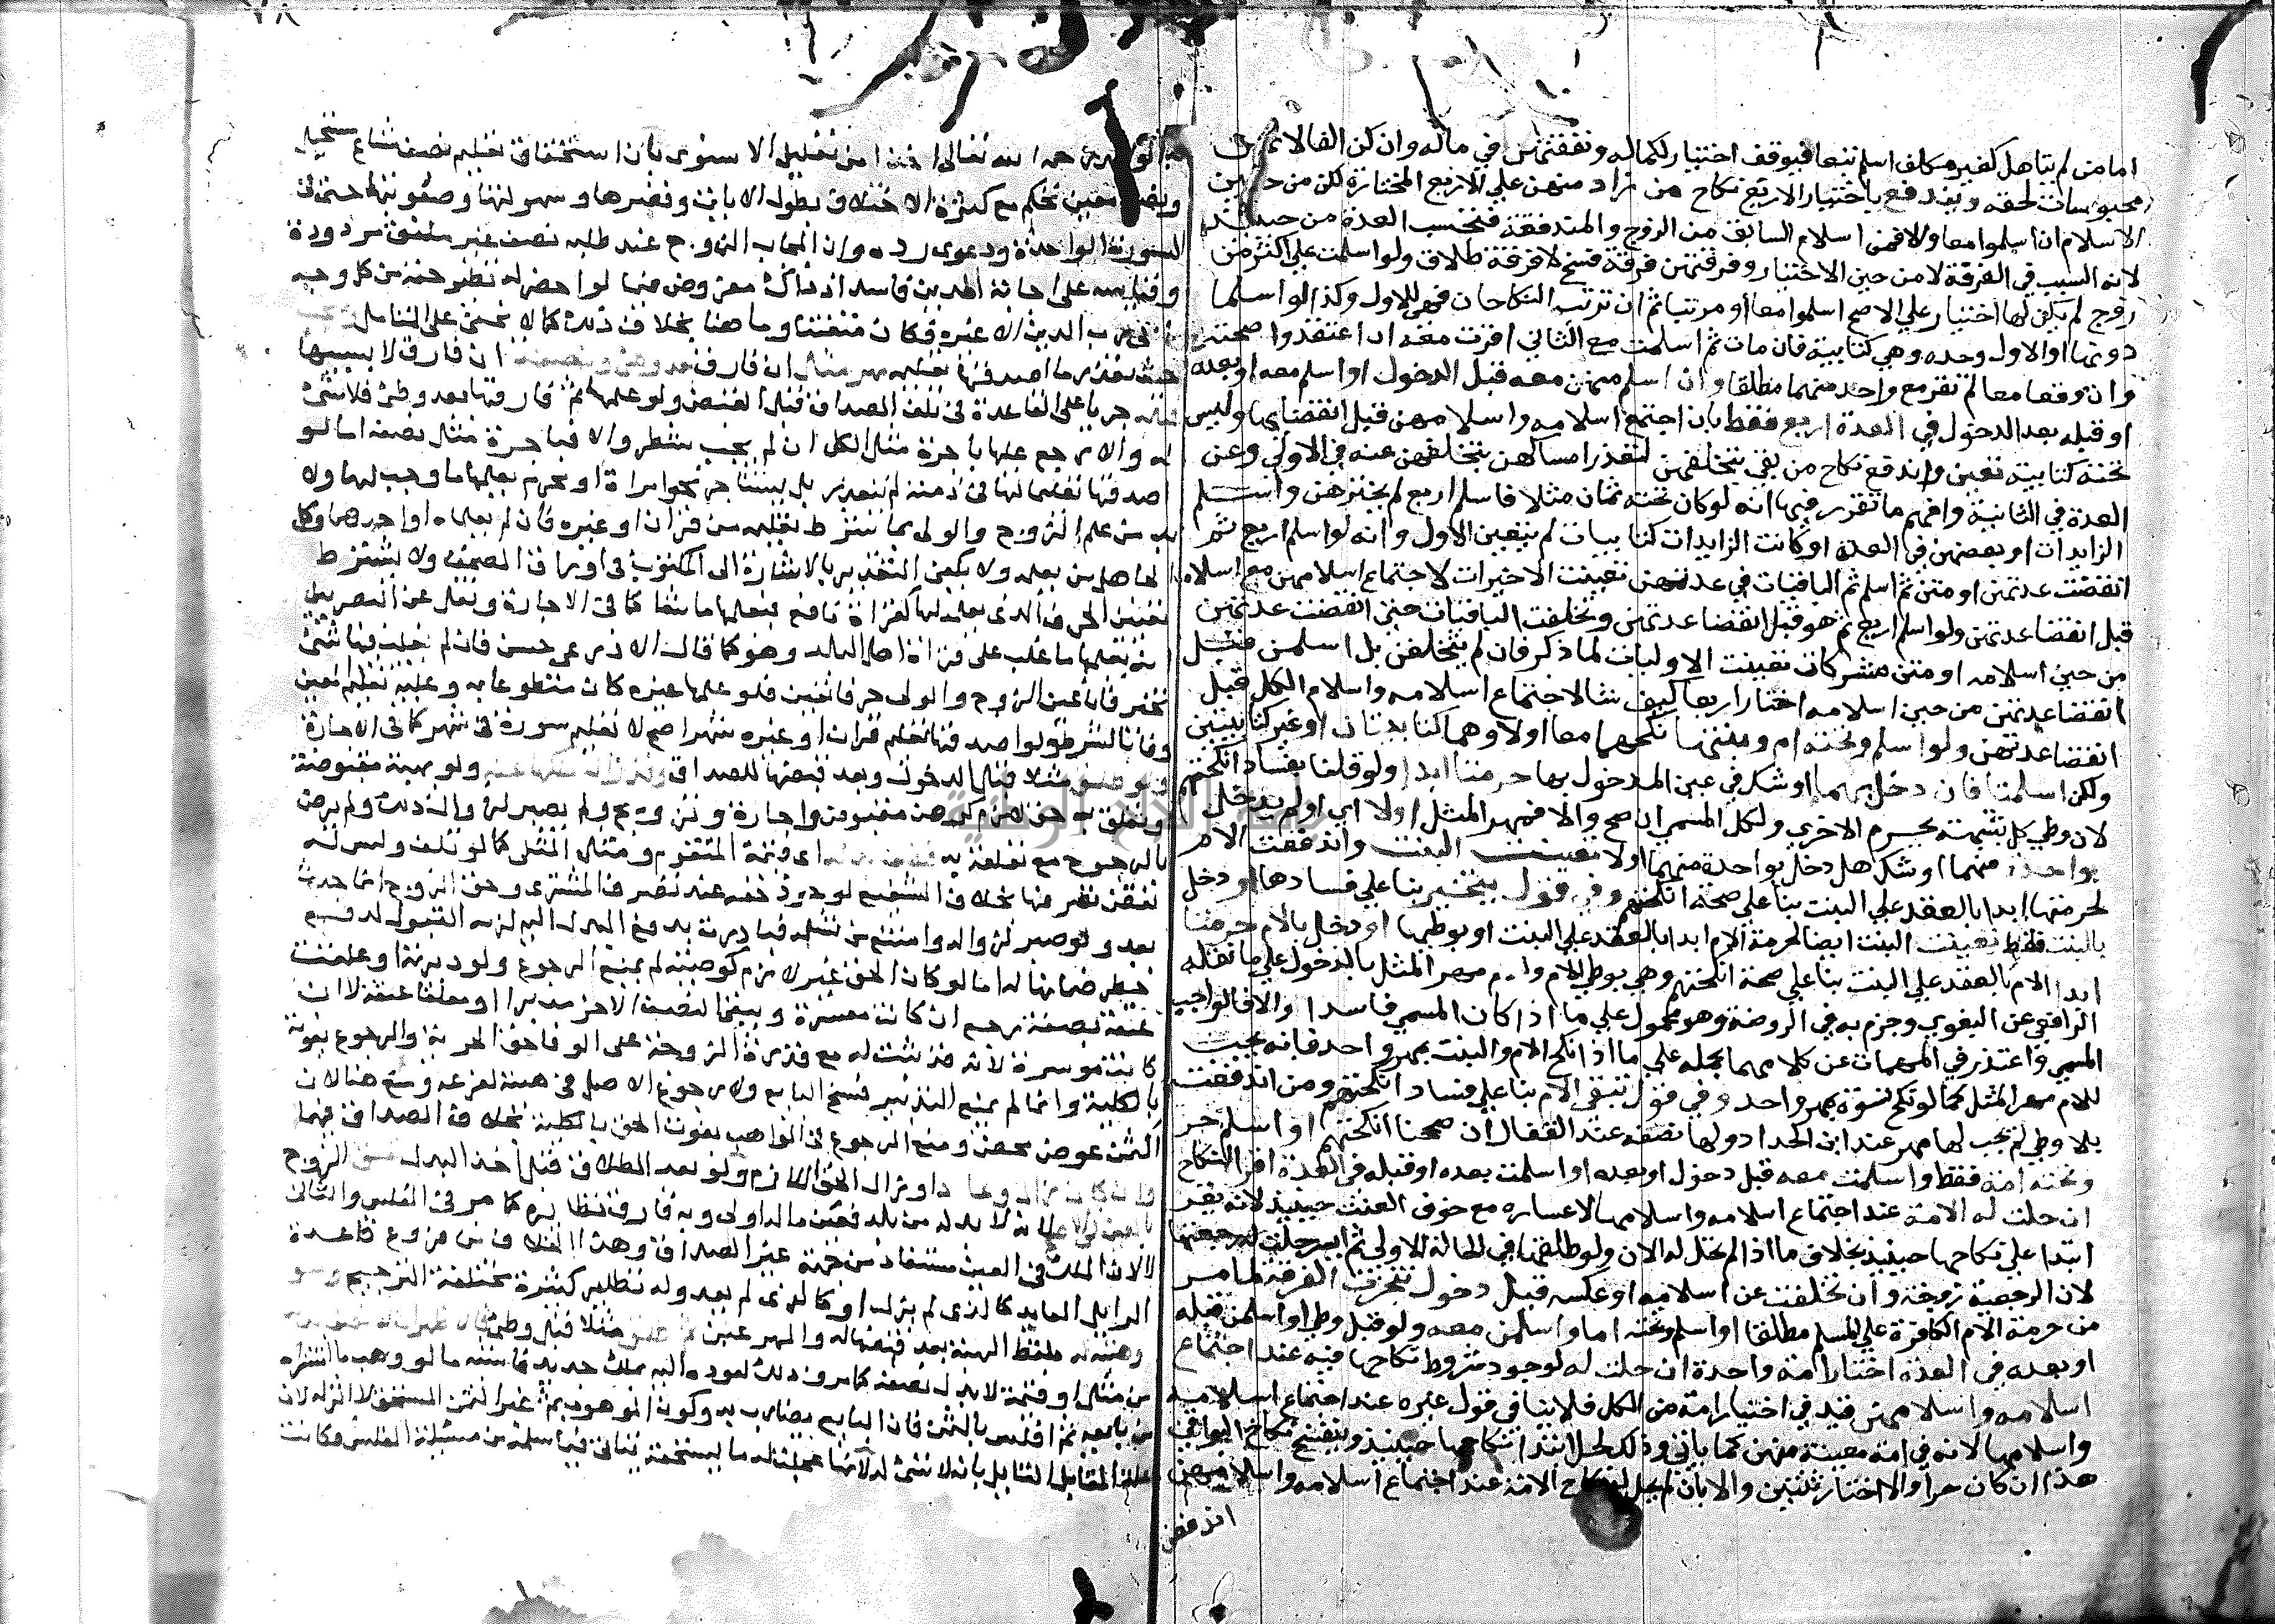 اما من لم يتاهل كغير مكلف اسلم تبعا فيوقف اختيار لكماله ونفقتهن في ماله وان كن الفا لانهن
محبوسات لحقه ويندفع باختيار الاربع نكاح من زاد منهن علي الاربع المختارة لكن من حين
الاسلام ان اسلموا معا والا فمن اسلام السابق من الزوج والمندفعة فتحسب العدة من حينئذ
لانه السبب في الفرقة لا من حين الاختيار وفرقتهن فرقة فسخ لا فرقة طلاق ولو اسلمت علي اكثر من
زوج لم يكن لها اختيار علي الاصح اسلموا معا او مرتبا ثم ان ترتب النكاحان فهي للاول وكذا لو اسلما
دونها او الاول وحده وهي كتابية فان مات ثم اسلمت مع الثاني اقرت معه اذا اعتقدوا صحته
وان وقعا معا لم تقر مع واحد منهما مطلقا وان اسلم منهن معه قبل الدخول او اسلم معه او بعده
او قبله بعد الدخول في العدة اربع فقط بان اجتمع اسلامه واسلامهن قبل انقضايها وليس
تحته كتابية تعين واندفع نكاح من بقي بتخلفهن لتعذر امساكهن بتخلفهن عنه في الاولي وعن
العدة في الثانية وافهم ما تقرر فيها انه لو كان تحته ثمان مثلا فاسلم اربع لم يخترهن واسلم
الزايدات او بعضهن في العدة او كانت الزايدات كتابيات لم يتعين الاول وانه لو اسلم اربع ثم
انقضت عدتهن او متن ثم اسلم ثم الباقيات في عدتهن تعينت الاخيرات لاجتماع اسلامهن مع اسلامه
قبل انقضا عدتهن ولو اسلم اربع ثم هو قبل انقضا عدتهن وتخلفت الباقيات حتي انقضت عدتهن
من حين اسلامه او متن مشركات تعينت الاوليات لما ذكر فان لم يتخلفن بل اسلمن قبل
انقضا عدتهن من حين اسلامه اختار اربعا كيف شا لاجتماع اسلامه واسلام الكل قبل
انقضا عدتهن ولو اسلم وتحته ام وبنتها نكحهما معا اولا وهما كتابيتان او غير كتابيتين
ولكن اسلمتا فان دخل بهما او شك في عين المدخول بها حرمتا ابدا ولو قلنا بفساد انكحتهم
لان وطي كل بشبهة يحرم الاخري ولكل المسمي ان صح والا فمهر المثل اولا اي او لم يدخل
بواحدة منهما او شك هل دخل بواحدة منهما اولا تعينت البنت واندفعت الام
لحرمتها ابدا بالعقد علي البنت بنا علي صحة انكحتهم وفي قول يتخير بنا علي فسادها او دخل
بالبنت فقط تعينت البنت ايضا لحرمة الام ابدا بالعقد علي البنت او بوطيها او دخل بالام حرمتا
ابدا الام بالعقد علي البنت بنا علي صحة انكحتهم وهي بوطي الام ولام مهر المثل بالدخول علي ما نقله
الرافعي عن البغوي وجزم به في الروضة وهو محمول علي ما اذا كان المسمي فاسدا والا فالواجب
المسمي واعتذر في المهمات عن كلامهما بحمله علي ما اذا نكح الام والبنت بمهر واحد فانه يجب
للام مهر المثل كما لو نكح نسوة بمهر واحد وفي قول تبقي الام بنا علي فساد انكحتهم ومن اندفعت
بلا وطي لم يجب لها مهر عند ابن الحداد ولها نصفه عند القفال ان صححنا انكحتهم او اسلم حر
وتحته امة فقط واسلمت معه قبل دخول او بعده او اسلمت بعده او قبله في العدة اقر النكاح
ان حلت له الامة عند اجتماع اسلامه واسلامها لاعساره مع خوف العنت حينيذ لانه يقر
ابتدا علي نكاحها حينيذ بخلاف ما اذا لم تحل له الان ولو طلقها في الحالة الاولي ثم ايسر حلت له رجعتها
لان الرجعية زوجة وان تخلفت عن اسلامه او عكسه قبل دخول تنجزت الفرقة لما مر
من حرمة الام الكافرة علي المسلم مطلقا او اسلم وتحته اما واسلمن معه ولو قبل وطي او اسلمن قبله
او بعده في العدة اختار امة واحدة ان حلت له لوجود شروط نكاحها فيه عند اجتماع
اسلامه واسلامهن قيد في اختيار امة من الكل فلا ينافي قول غيره عند اجتماع اسلامه
واسلامها لانه في امة معينة منهن كما ياتي وذلك لحل ابتدا نكاحها حينيذ وينفسخ نكاح البواقي
هذا ان كان حرا والا اختار ثنتين والا بان لم يحل له نكاح الامة عند اجتماع اسلامه واسلامهن
اندفعن
تعالى اخذا من تعليل الاسنوى بان استحقاق تعليم نصف مشاع مستحيل
ونصف معين تحكم مع كثرة الاختلاف بطول الايات وقصرها وسهولتها وصعوبتها حتى فى
السورة الواحدة ودعوى رده وان المجاب الزوج عند طلبه نصف غير ملفق مردودة
وقياسه على احالة المدين فاسد اذ ذاك مفروض فيما لو احضر له نظير حقه من كل وجه
حيث تعذر ما اصدقها تعليمه مهر مثل ان فارق بعد وطئ ونصفه ان فارق لا بسببها
قبله جريا على القاعدة فى تلف الصداق قبل القبض ولو علمها ثم فارقها بعد وطئ فلا شئ
له والا رجع عليها باجرة مثل الكل ان لم يجب شطر والا فباجرة مثل نصفه اما لو
اصدقها تعليمها فى ذمته لم يتعذر بل يستاجر نحو امراة او محرم يعلمها ما وجب لها ولا
بد من علم الزوج والولى بما شرط تعليمه من قران او غيره فان لم يعلماه او احدهما وكل
الجاهل من يعلمه ولا يكفى التقدير بالاشارة الى المكتوب فى اوراق المصحف ولا يشترط
تعيين الحرف الذى يعلمه لها كقراة نافع فيعلمها ما شا كما فى الاجارة ونقل عن البصريين
انه يعلمها ما غلب على قراة اهل البلد وهو كما قال الاذرعى حسن فان لم يغلب فيها شئ
تخير فان عين الزوج والولى حرفا تعين فلو علمها غيره كان متطوعا به وعليه تعليم المعين
وفا بالشرط ولو اصدقها تعليم قران او غيره شهرا صح لا تعليم سورة فى شهر كما فى الاجارة
ولو طلق مثلا قبل الدخول وبعد قبضها للصداق وقد زال ملكها عنه ولو بهبة مقبوضة
وتعلق به حق لازم كرهن مقبوض واجارة وتزويج ولم يصبر لزوال ذلك ولم يرض
بالرجوع مع تعلقه به فنصف بدله اى قيمة المتقوم ومثل المثلى كما لو تلف وليس له
نقض تصرفها بخلاف الشفيع لوجود حقه عند تصرف المشترى وحق الزوج انما حدث
بعد ولو صبر لزواله وامتنع من تسلمه فبادرته بدفع البدل اليه لزمه القبول لدفع
خطر ضمانها له اما لو كان الحق غير لازم كوصية لم يمنع الرجوع ولو دبرته او علقت
عتقه بصفة رجع ان كانت معسرة ويبقى النصف الاخر مدبرا او معلقا عتقه لا ان
كانت موسرة لانه قد ثبت له مع قدرة الزوجة على الوفا حق الحرية والرجوع يفوته
بالكلية وانما لم يمنع التدبير فسخ البايع ولا رجوع الاصل فى هبته لفرعه ومنع هنا لان
الثمن عوض محض ومنع الرجوع فى الواهب يفوت الحق بالكلية بخلاف الصداق فيهما
وان كان زال وعاد او زال الحق اللازم ولو بعد الطلاق قبل اخذ البدل تعلق الزوج
بالعين فى الاصح لانه لا بد له من بدل فعين ماله اولى وبه فارق نظايره كما مر فى الفلس والثانى
لا لان الملك فى العين مستفاد من جهة غير الصداق وهذا الخلاف من فروع قاعدة
الزايل العايد كالذى لم يزل او كالذى لم يعد وله نظاير كثيرة مختلفة الترجيح ولو
وهبته له بلفظ الهبة بعد قبضها له والمهر عين ثم طلق مثلا قبل وطئ فالاظهر ان له نصف بدله
من مثل او قيمة لا بدل نصفه كما مر وذلك لعوده اليه بملك جديد فاشبه ما لو وهب ما اشتراه
من بايعه ثم افلس بالثمن فان البايع يضارب به وكون الموهوب ثم غير الثمن المستحق لا اثر له لان
علة المقابل القايل بانه لا شئ له لانها عجلت له ما يستحقه يتاتى فيما سلمه من مسئلة الفلس وكانت